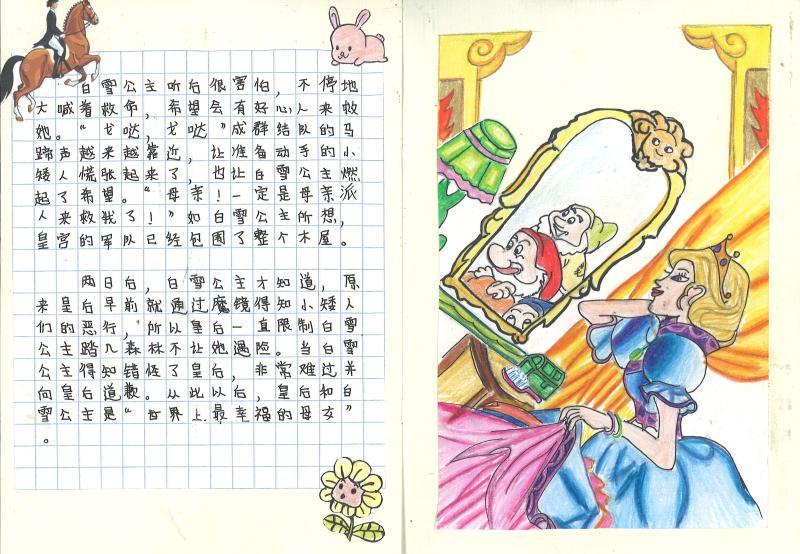 白雪公主听后很害怕，不停地
大喊着救命，希望会有好心人来救
她。“戈哒，戈哒”成群结队的马
蹄声越来越靠近，让准备动手的小
矮人慌张起来了，也让白雪公主燃
起了希望。“母亲！一定是母亲派
人来救我了！”如白雪公主所想，
皇宫的军队已经包围了整个木屋。
两日后，白雪公主才知道，原
来皇后早前就通过魔镜得知小矮人
们的恶行，所以皇后一直限制白雪
公主踏入森林不让她遇险。当白雪
公主得知错怪了皇后，非常难过并
向皇后道歉。从此以后，皇后和白
雪公主是“世界上最幸福的母女”
。